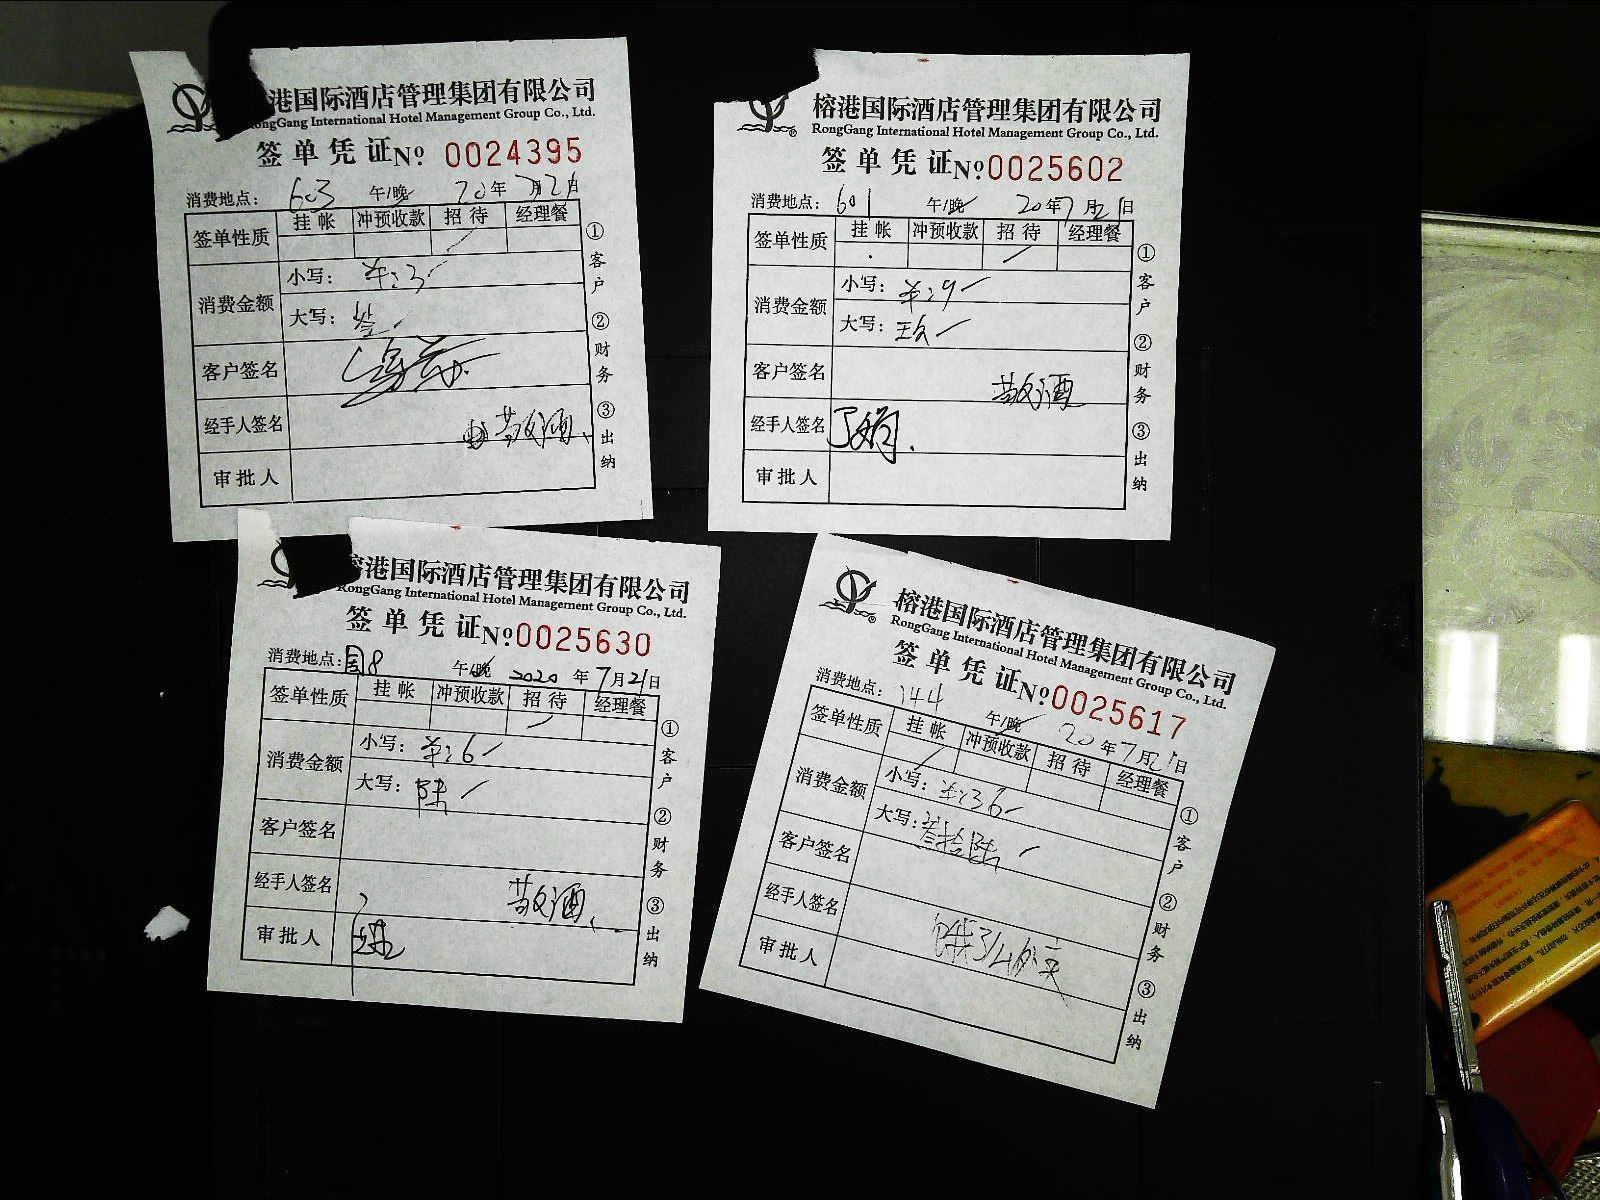 港国际酒店管理集团有限公司
RongGang International Hotel Management Group Co., Ltd.
签单凭证 № 0024395
消费地点: 603 午/晚 20年7月21日
签单性质 挂帐 冲预收款 招待 经理餐
消费金额 小写: 羊:3
大写: 叁
客户签名
经手人签名 敬酒
审批人
①客户 ②财务 ③出纳
榕港国际酒店管理集团有限公司
RongGang International Hotel Management Group Co., Ltd.
签单凭证 №0025602
消费地点: 601 午/晚 20年7月21日
签单性质 挂帐 冲预收款 招待 经理餐
消费金额 小写: 羊:9
大写: 玖
客户签名 敬酒
经手人签名
审批人
①客户 ②财务 ③出纳
榕港国际酒店管理集团有限公司
RongGang International Hotel Management Group Co., Ltd.
签单凭证 №0025630
消费地点: 8 午/晚 2020年7月21日
签单性质 挂帐 冲预收款 招待 经理餐
消费金额 小写: 羊:6
大写: 陆
客户签名
经手人签名 敬酒
审批人
①客户 ②财务 ③出纳
榕港国际酒店管理集团有限公司
RongGang International Hotel Management Group Co., Ltd.
签单凭证 №0025617
消费地点: 144 午/晚 20年7月21日
签单性质 挂帐 冲预收款 招待 经理餐
消费金额 小写: 羊:36
大写: 叁拾陆
客户签名
经手人签名
审批人
①客户 ②财务 ③出纳